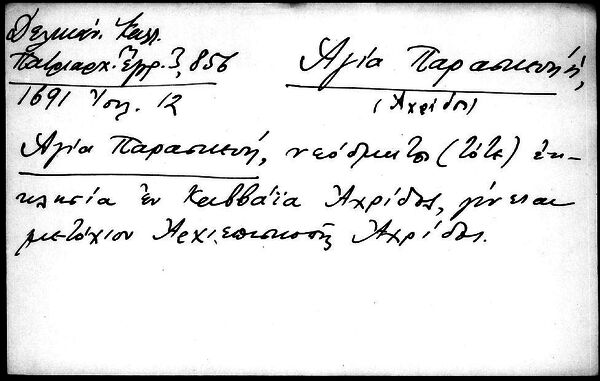 Δελικάν. Καλλ.
Πατριαρχ. Ἔγγρ. 3, 856
1691 Ἰουλ. 12
Ἁγία Παρασκευή,
(Ἀχρίδος)
Ἁγία Παρασκευή, νεόδμητος (τότε) ἐκ-
κλησία ἐν Καββαΐα Ἀχρίδος, γίνεται
μετόχιον Ἀρχιεπισκοπῆς Ἀχρίδος.